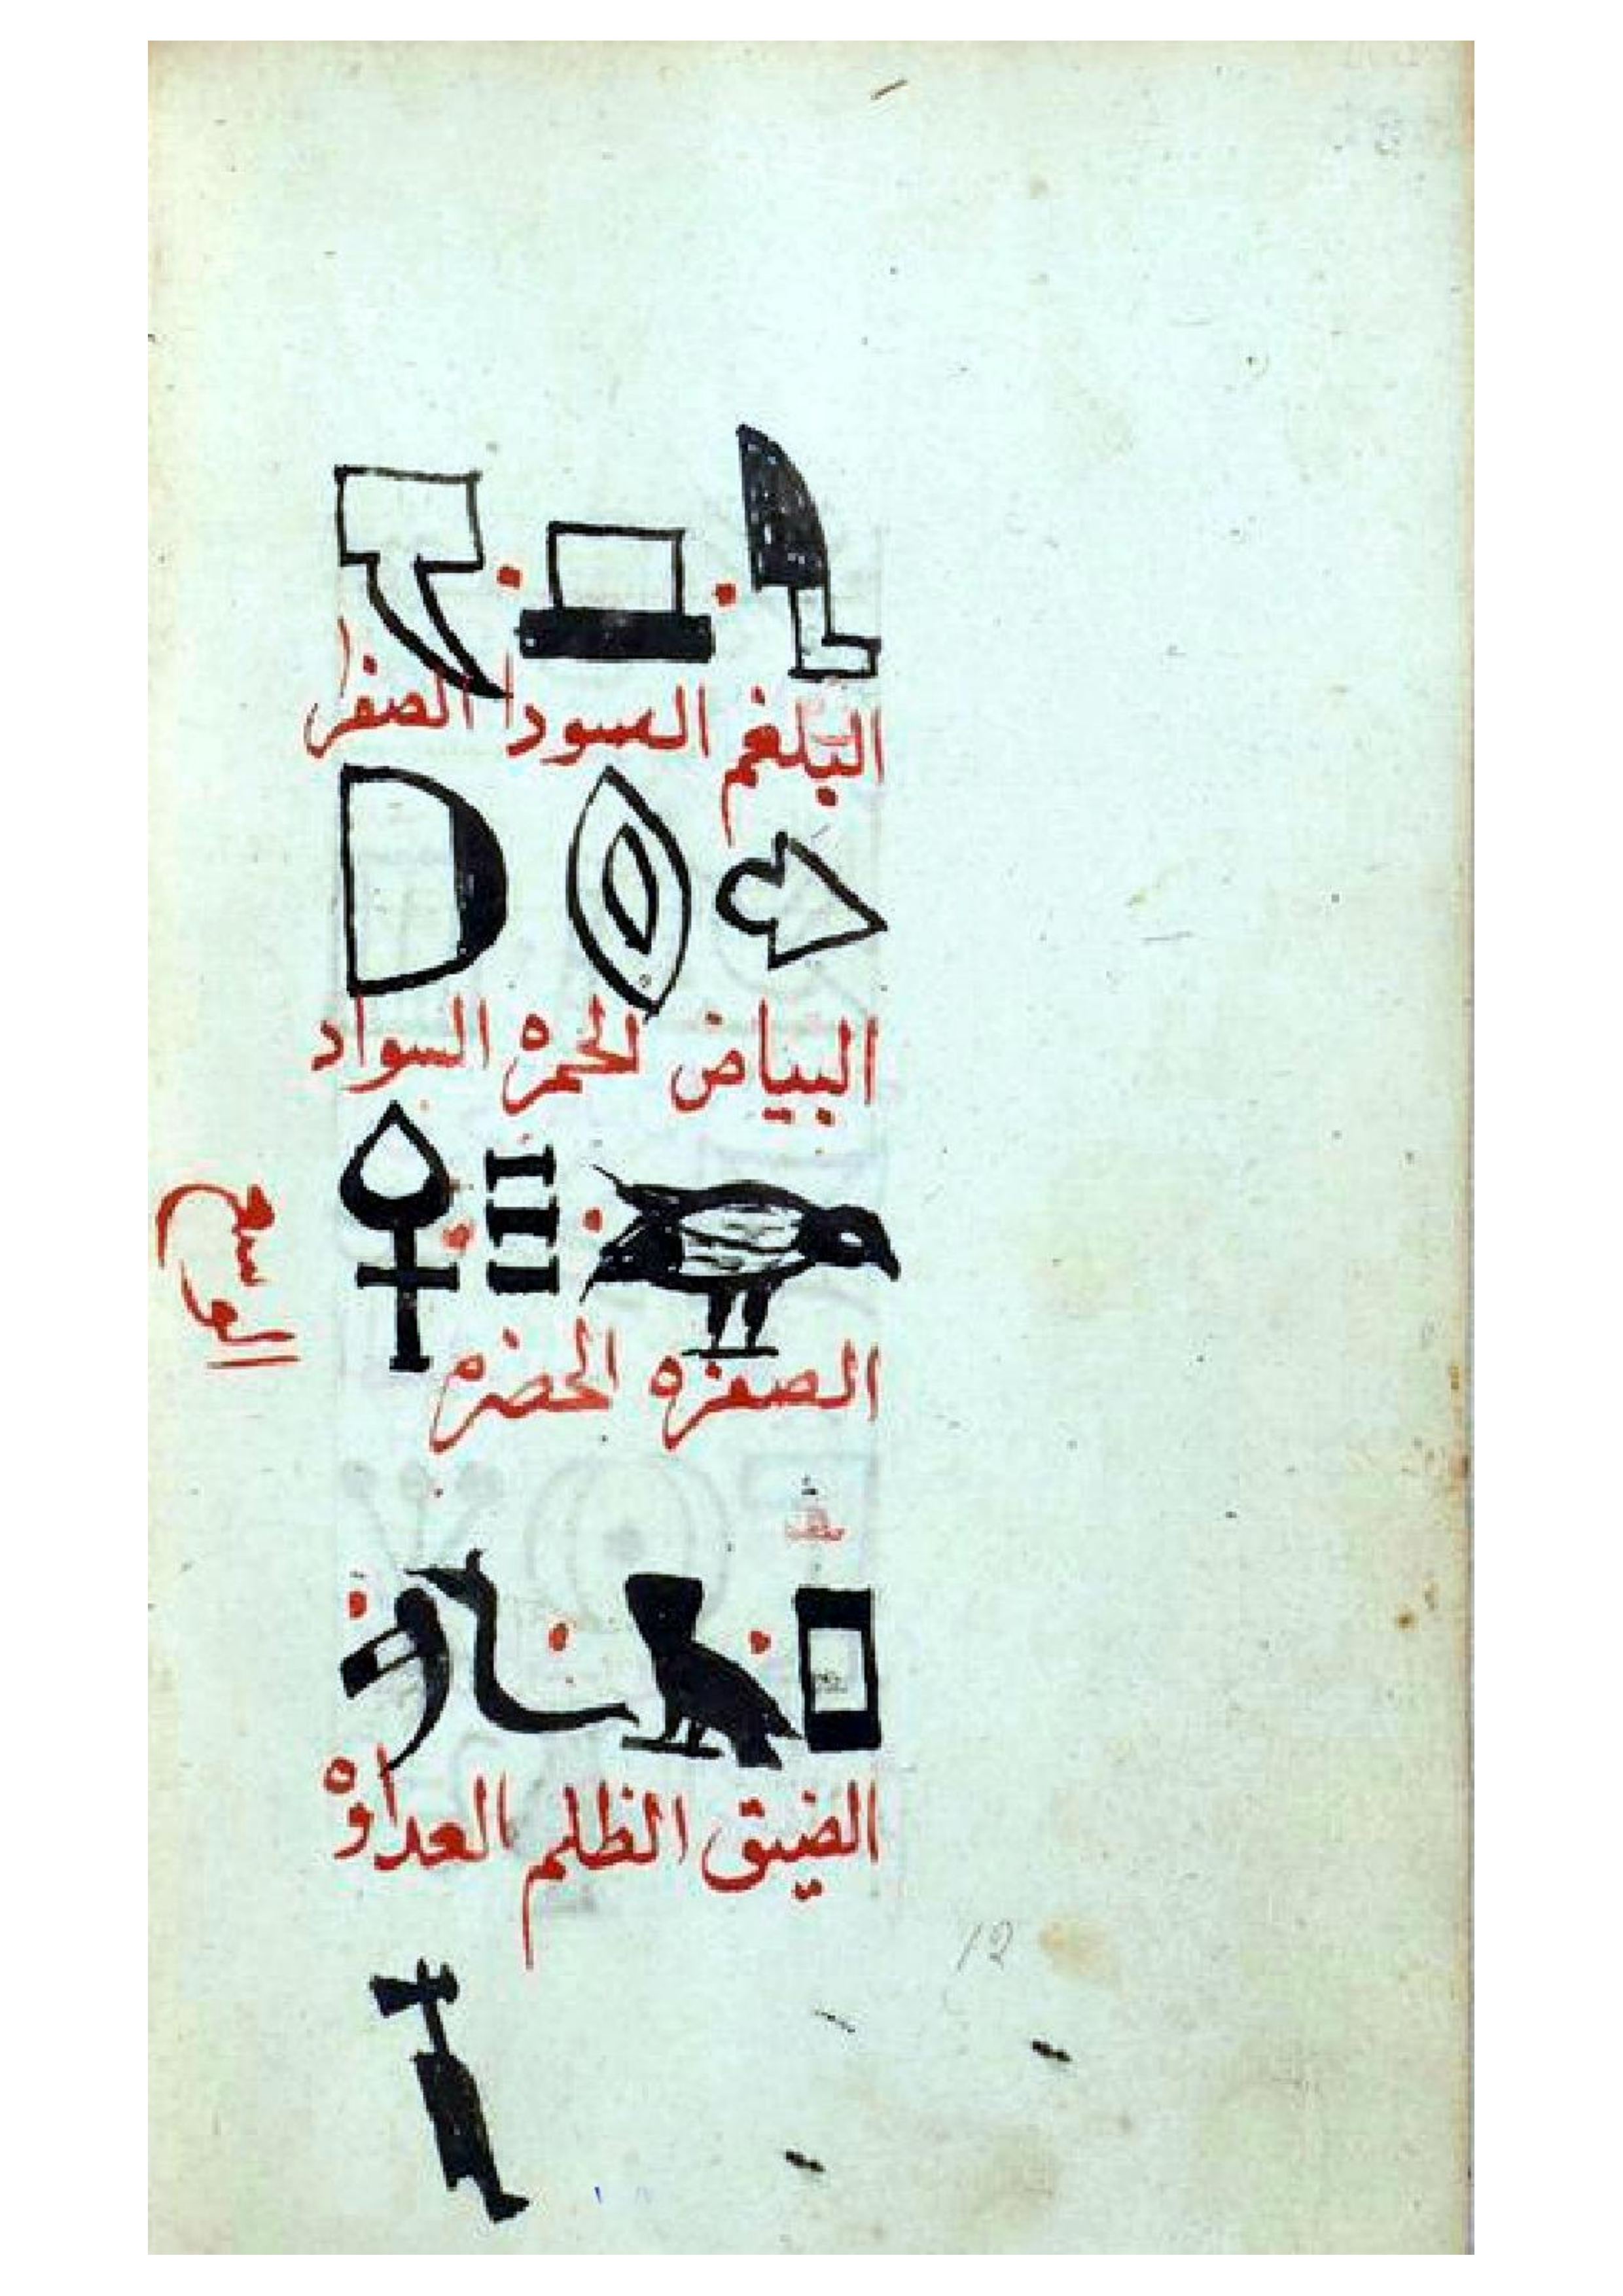 البلغم السودا الصفرا
البياض الحمره السواد
الصفره الخضرم
الضيق الظلم العداوه
12